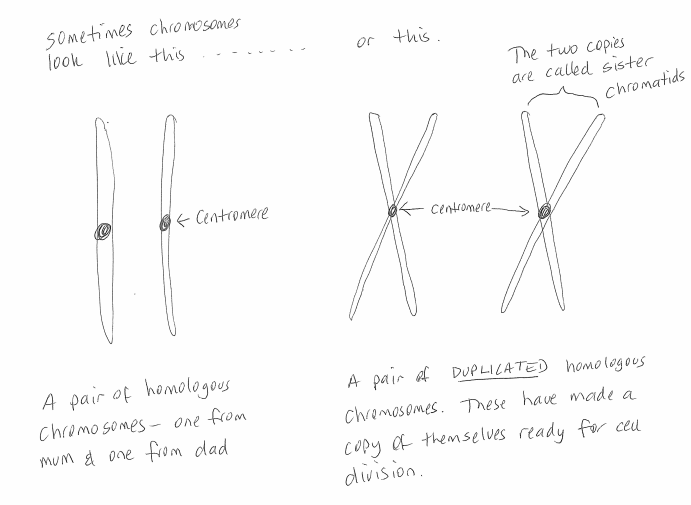 sometimes chromosomes
look like this ........
or this.
The two copies
are called sister
chromatids
← Centromere
← centromere →
A pair of homologous
chromosomes - one from
mum & one from dad
A pair of DUPLICATED homologous
chromosomes. These have made a
copy of themselves ready for cell
division.